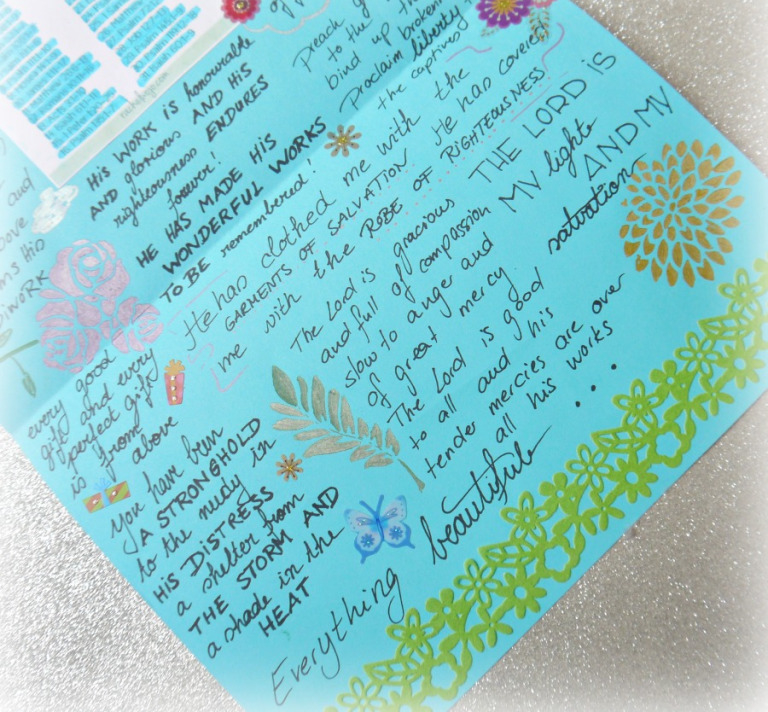 His WORK is honourable
AND glorious AND His
righteousness ENDURES
forever!
HE HAS MADE HIS
WONDERFUL WORKS
TO BE remembered!
Preach
to the
bind up the
broken
Proclaim liberty
the captives
He has clothed me with the
GARMENTS OF SALVATION. He has covered
me with the ROBE OF RIGHTEOUSNESS!
The Lord is gracious
and full of compassion
slow to anger and
of great mercy.
The Lord is good
to all and his
tender mercies are over
all his works
...
THE LORD IS
MY light
AND MY
salvation
and
every good
gift and every
perfect gift
is from
above
you have been
A STRONGHOLD
to the needy in
HIS DISTRESS
a shelter from
THE STORM AND
a shade in the
HEAT
Everything beautiful